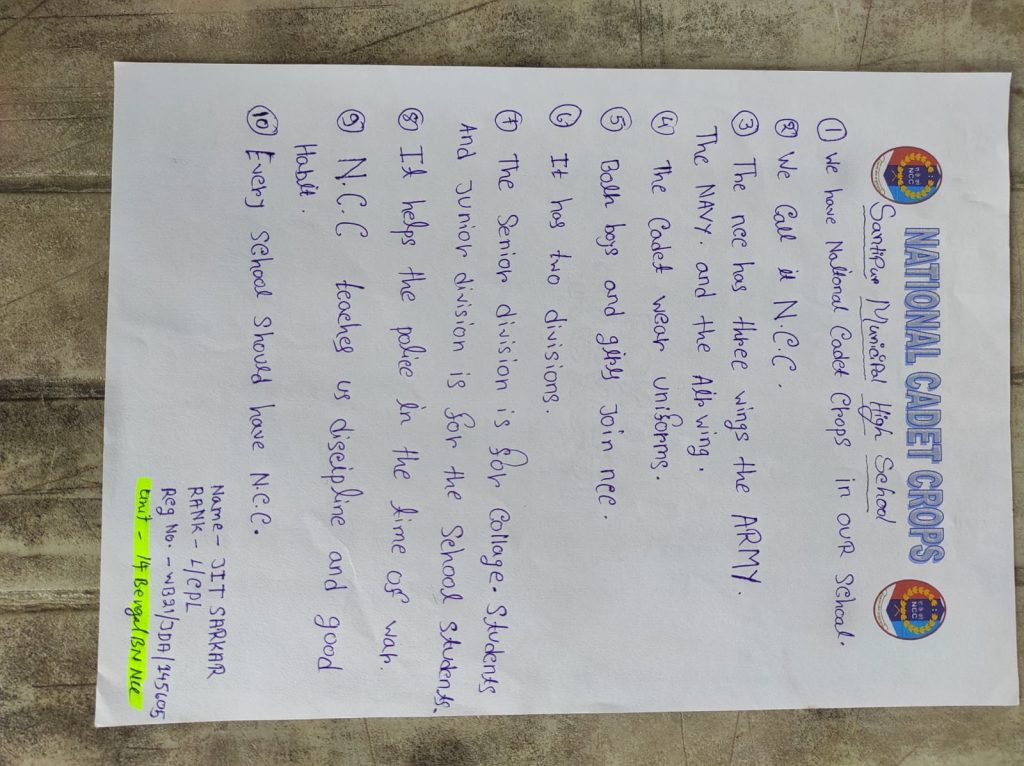 NATIONAL CADET CROPS
Santipur Municipal High School
① We have National Cadet Crops in our School.
② We Call it N.C.C.
③ The ncc has three wings the ARMY.
The NAVY. and the Airwing.
④ The Cadet wear uniforms.
⑤ Both boys and girls Join ncc.
⑥ It has two divisions.
⑦ The Senior division is for Collage. Students
And Junior division is for the School Students.
⑧ It helps the police in the time of war.
⑨ N.C.C teaches us discipline and good
Habit.
⑩ Every School Should have N.C.C.
Name - JIT SARKAR
RANK - L/CPL
Reg No. - WB21/JDA/145605
Unit - 14 Bengal BN Ncc
NCC
NCC